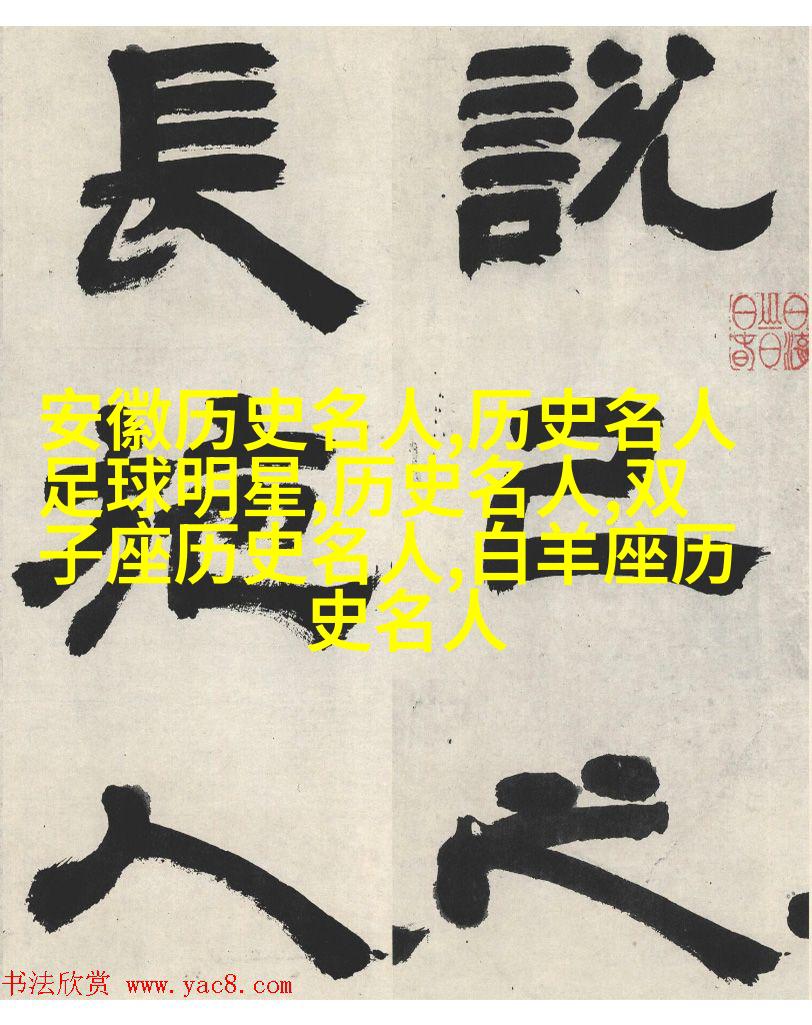 説己之
長施人
安徽历史名人,历史名人
足球明星,历史名人,双
子座历史名人,白羊座历
史名人
书法欣赏 www.yac8.com